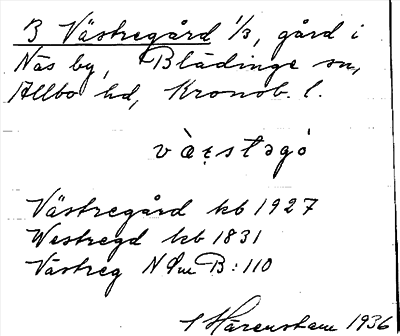 B Västregård 1/3, gård i
Näs by, Blädinge sn,
Allbo hd, Kronob. l.
và̀ꭋstəgó
Västregård kb 1927
Westregd kb 1831
Västreg NOm B:110
Härenstam 1936